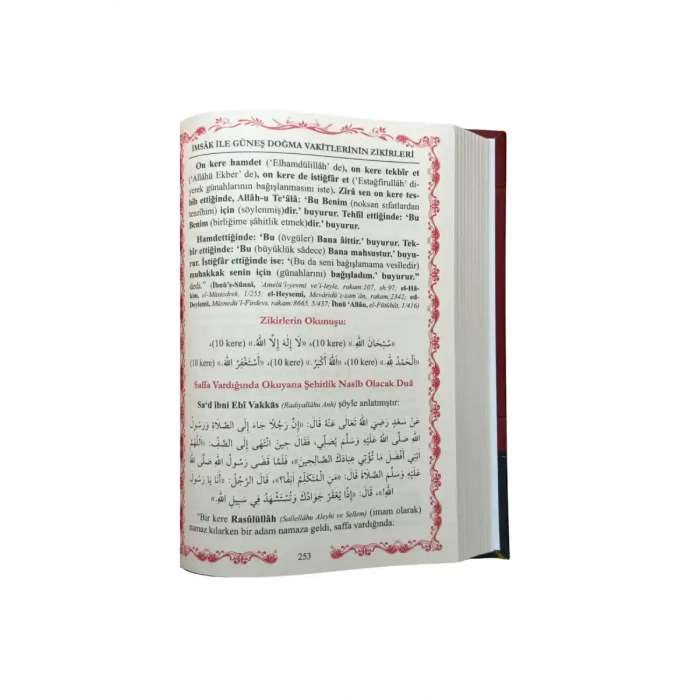 İMSÂK İLE GÜNEŞ DOĞMA VAKİTLERİNİN ZİKİRLERİ
On kere hamdet ('Elhamdülillâh' de), on kere tekbîr et
('Allâhü Ekber' de), on kere de istiğfâr et ('Estağfirullâh' di-
yerek günahlarının bağışlanmasını iste). Zîrâ sen on kere tes-
bîh ettiğinde, Allâh-u Te'âlâ: 'Bu Benim (noksan sıfatlardan
tenzîhim) için (söylenmiş)dir.' buyurur. Tehlîl ettiğinde: 'Bu
Benim (birliğime şâhitlik etmek)dir.' buyurur.
Hamdettiğinde: 'Bu (övgüler) Bana âittir.' buyurur. Tek-
bîr ettiğinde: 'Bu (büyüklük sâdece) Bana mahsustur.' buyu-
rur. İstiğfâr ettiğinde ise: '(Bu da seni bağışlamama vesîledir)
muhakkak senin için (günahlarını) bağışladım.' buyurur."
dedi." (İbnü's-Sünnî, 'Amelü'l-yevmi ve'l-leyle, rakam:107, sh:97; el-Hâ-
kim, el-Müstedrek, 1/255; el-Heysemî, Mevâridü'z-zam'ân, rakam:2342; ed-
Deylemî, Müsnedü'l-Firdevs, rakam:8665, 5/437; İbnü 'Allân, el-Fütûhât, 1/416)
Zikirlerin Okunuşu:
«سُبْحَانَ اللّٰهِ.» (10 kere)، «لَا إِلٰهَ إِلَّا اللّٰهُ.» (10 kere)،
«اَلْحَمْدُ لِلّٰهِ.» (10 kere)، «اَللّٰهُ أَكْبَرُ.» (10 kere)، «أَسْتَغْفِرُ اللّٰهَ.» (10 kere)
Saffa Vardığında Okuyana Şehitlik Nasîb Olacak Duâ
Sa'd ibni Ebî Vakkâs (Radıyallâhu Anh) şöyle anlatmıştır:
عَنْ سَعْدٍ رَضِيَ اللّٰهُ تَعَالَى عَنْهُ قَالَ: «إِنَّ رَجُلًا جَاءَ إِلَى الصَّلَاةِ وَرَسُولُ
اللّٰهِ صَلَّى اللّٰهُ عَلَيْهِ وَسَلَّمَ يُصَلِّي، فَقَالَ حِينَ انْتَهَى إِلَى الصَّفِّ: «اَللّٰهُمَّ
اٰتِنِي أَفْضَلَ مَا تُؤْتِي عِبَادَكَ الصَّالِحِينَ»، فَلَمَّا قَضَى رَسُولُ اللّٰهِ صَلَّى اللّٰهُ
عَلَيْهِ وَسَلَّمَ الصَّلَاةَ قَالَ: «مَنِ الْمُتَكَلِّمُ اٰنِفًا؟»، قَالَ الرَّجُلُ: «أَنَا يَا رَسُولَ
اللّٰهِ!»، قَالَ: «إِذًا يُعْقَرُ جَوَادُكَ وَتُسْتَشْهَدُ فِي سَبِيلِ اللّٰهِ.»
"Bir kere Rasûlüllâh (Sallellâhu Aleyhi ve Sellem) (imam olarak)
namaz kılarken bir adam namaza geldi, saffa vardığında:
253